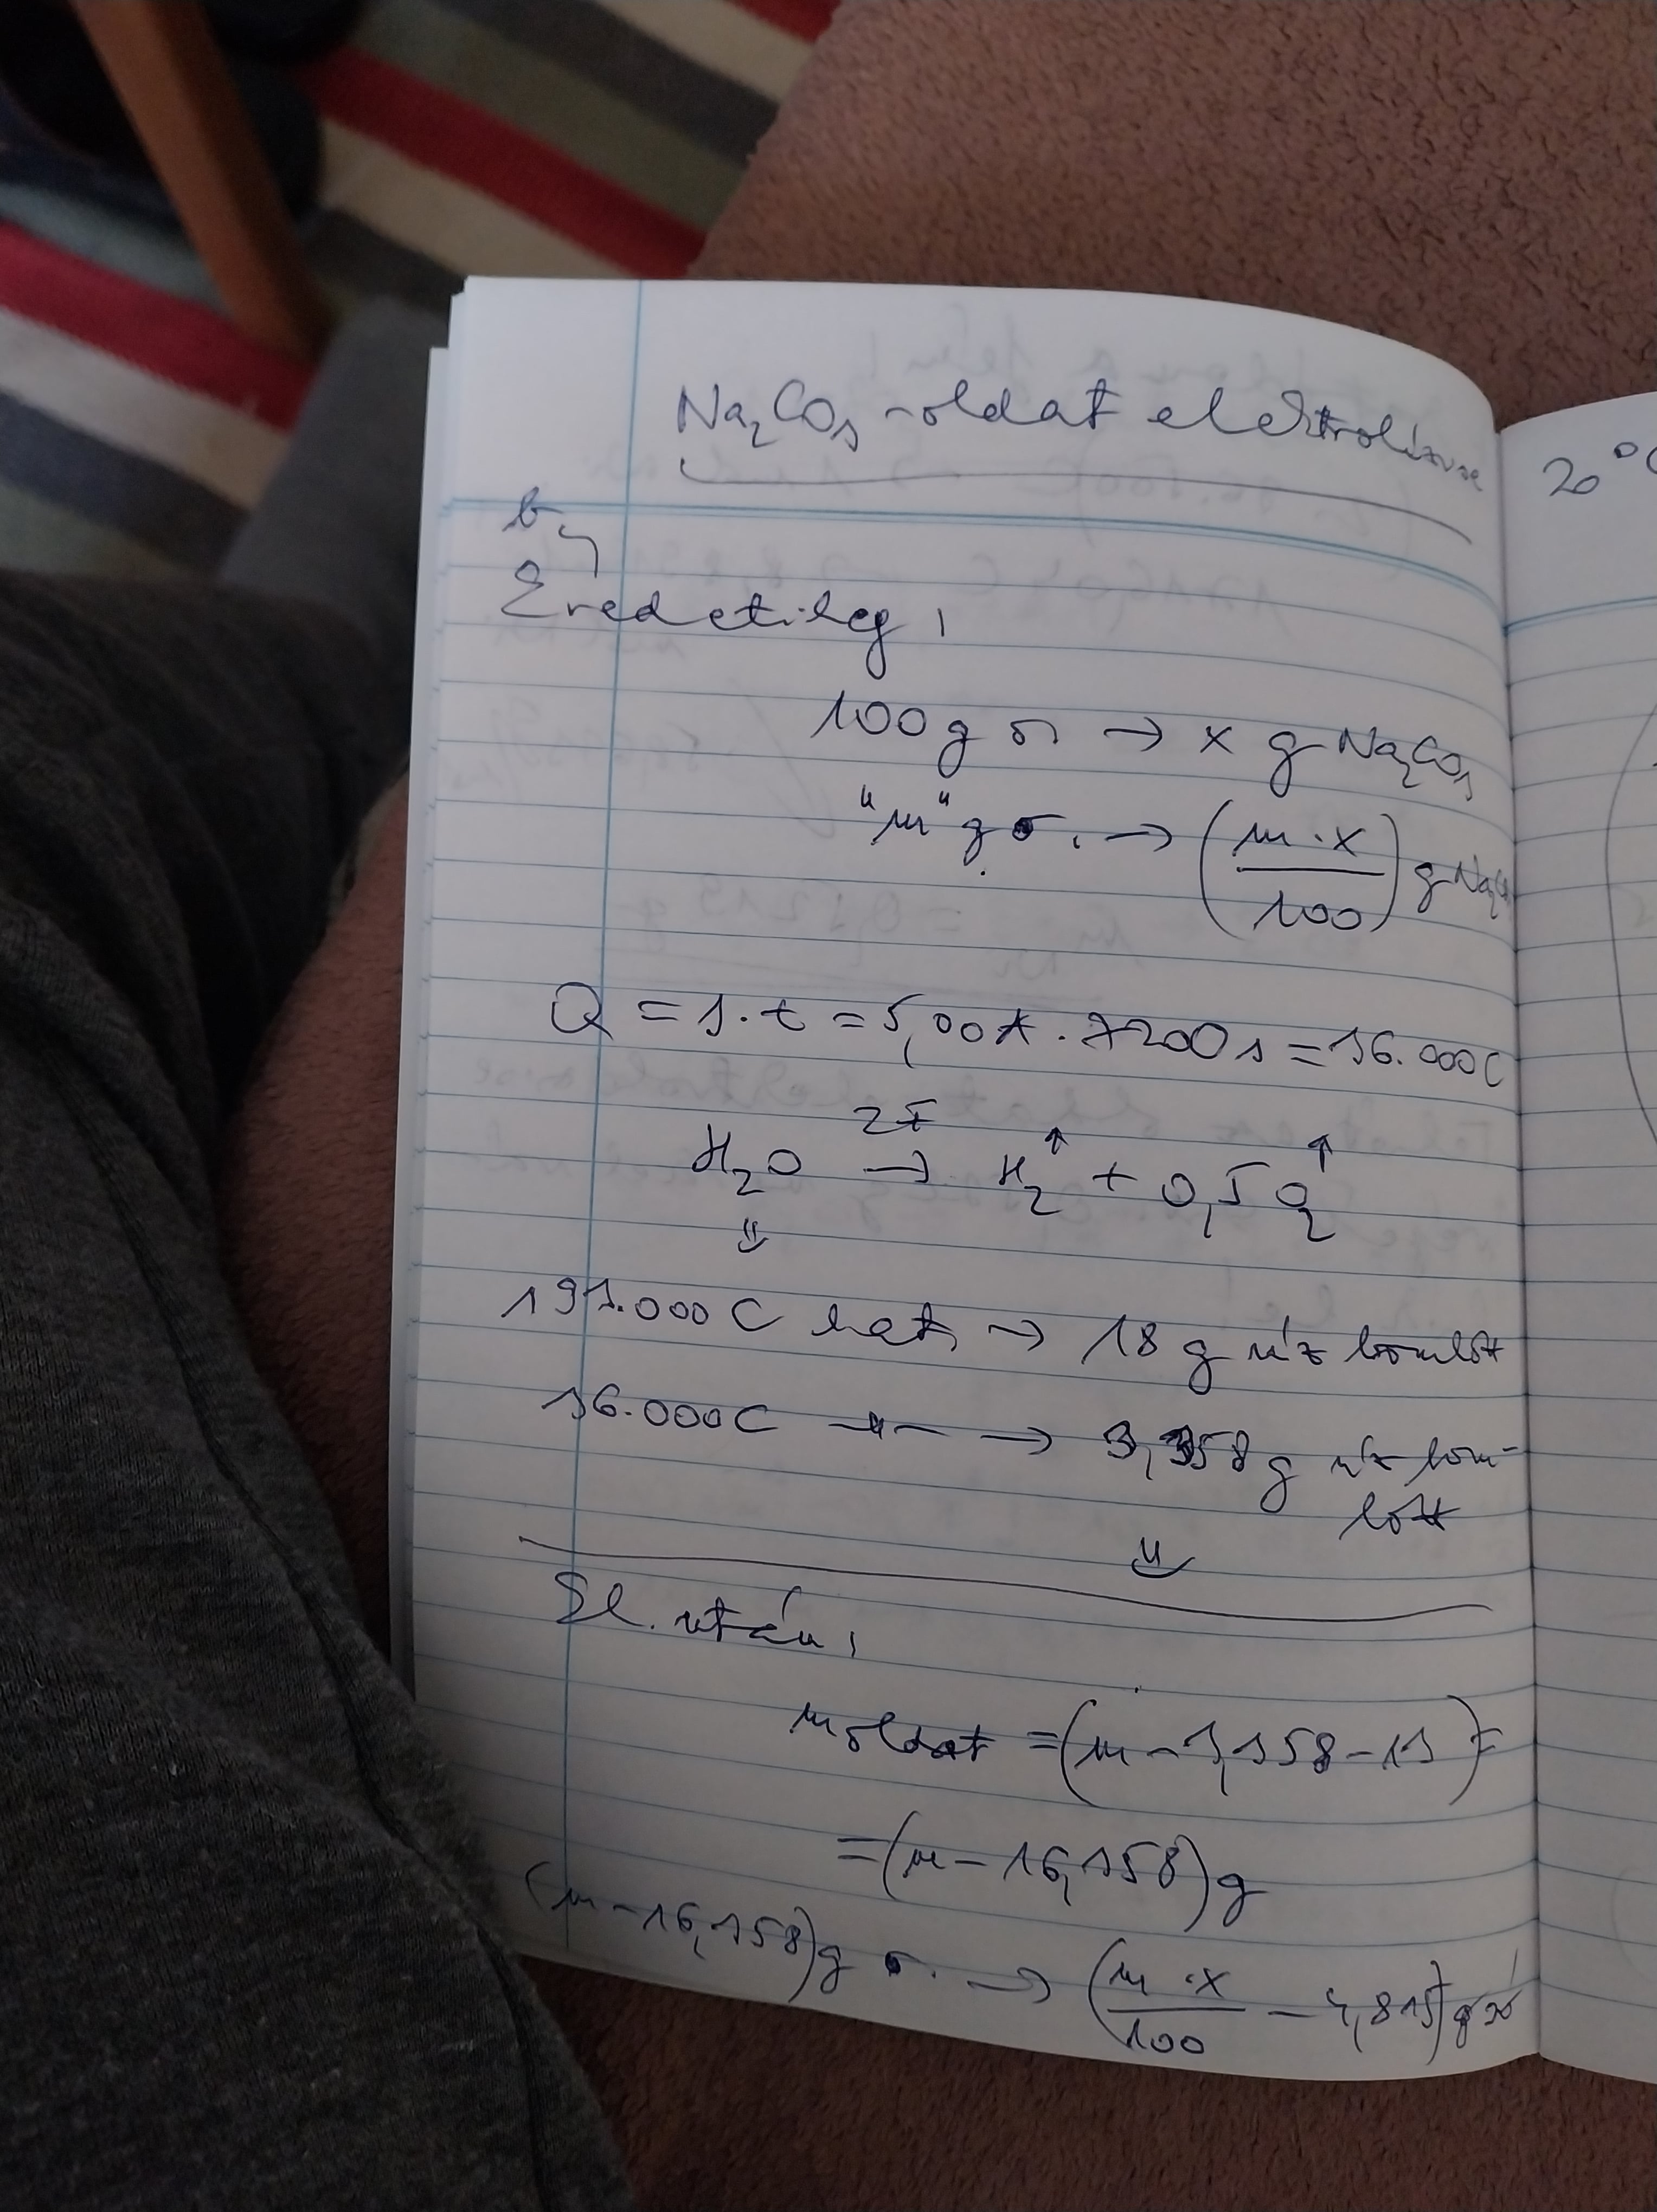 Na₂CO₃-oldat elektrolízise
b,
Eredetileg:
100 g o. → x g Na₂CO₃
"m" g o. → (m·x/100) g Na₂CO₃
Q = I·t = 5,00A·7200s = 36.000C
H₂O →(2F) H₂↑ + 0,5 O₂↑
⇓
193.000C hat. → 18 g víz bomlott
36.000C —"— → 3,358 g víz bom-
lott
⇓
El. után:
m oldat = (m - 3,358 - 13) =
= (m - 16,358) g
(m - 16,358) g o. → (m·x/100 - 4,815) g
20 °C